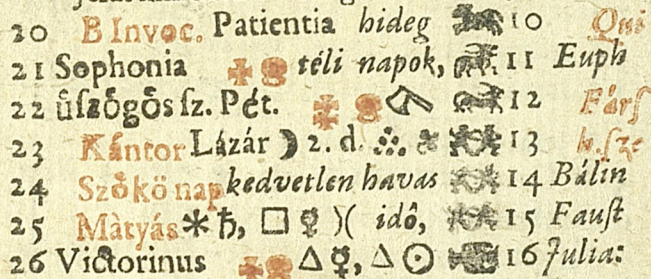 20 B Invoc. Patientia hideg 10
21 Sophonia téli napok, 11 Euph
22 ûſzôgôs ſz. Pét. 12 Fárſ
23 Kántor Lázár ☽ 2. d. 13 h. ſze
24 Szôkô nap kedvetlen havas 14 Bálin
25 Màtyás ✱ ♄, □ ☿ )( idô, 15 Fauſt
26 Victorinus △ ☿, △ ☉ 16 Julia: